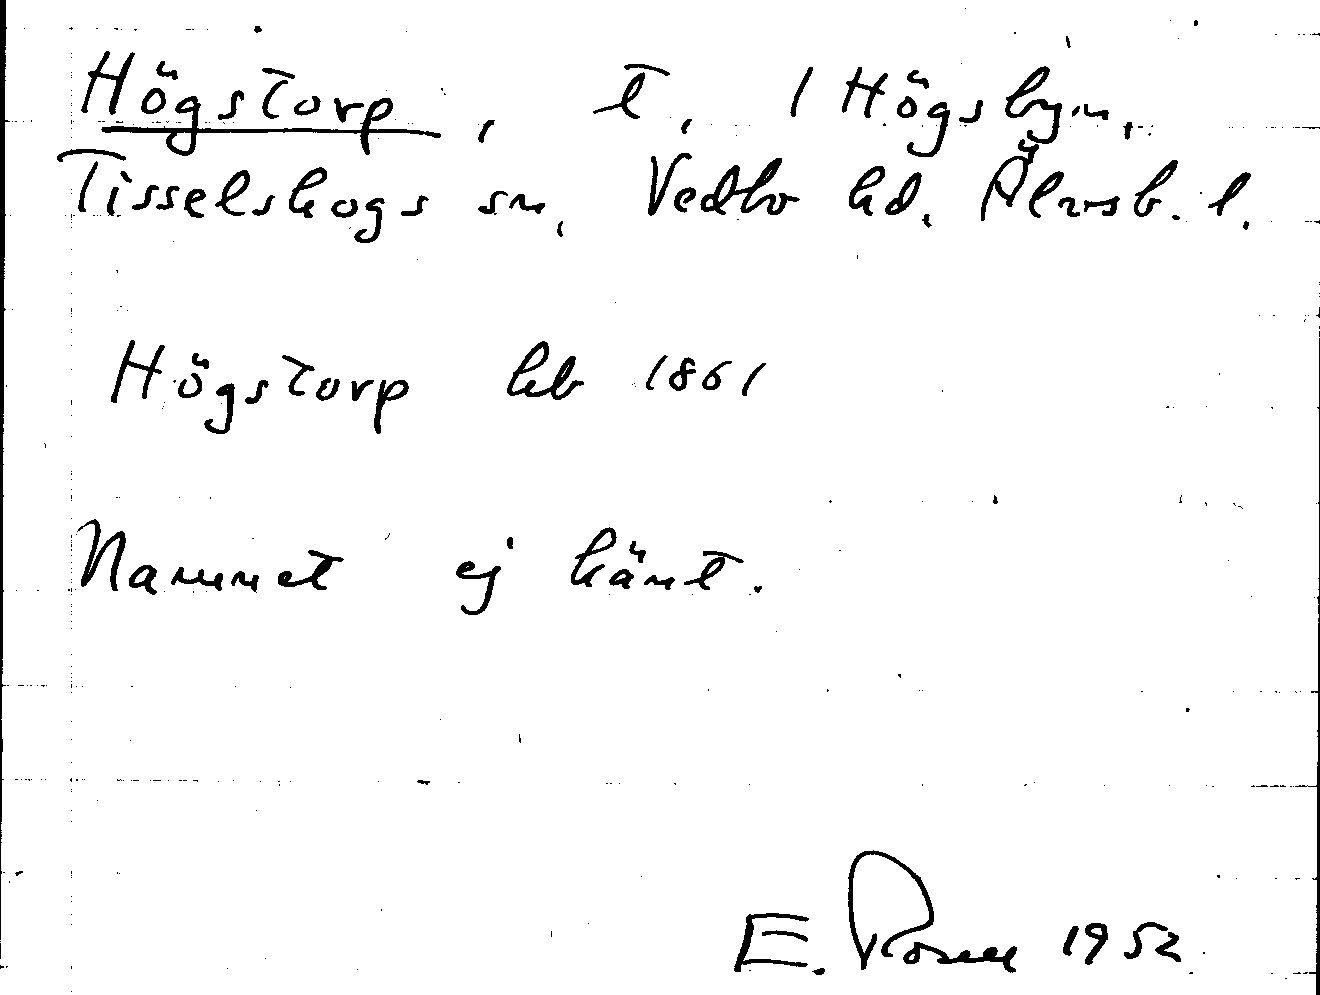 Högstorp, t. / Högsbyn,
Tisselskogs sn, Vedbo hd. Älvsb. l.
Högstorp hb 1861
Namnet ej känt.
E. Rosell 1952